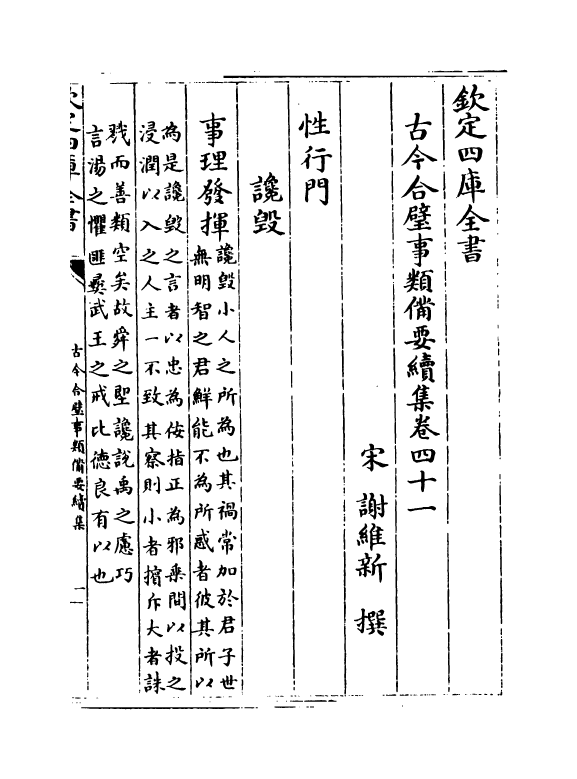 欽定四庫全書
古今合璧事類備要續集卷四十一
宋 謝維新 撰
性行門
讒毀
事理發揮 讒毀小人之所為也其禍常加於君子世
無明智之君鮮能不為所惑者彼其所以
為是讒毀之言者以忠為佞指正為邪乗間以投之
浸潤以入之人主一不致其察則小者擯斥大者誅
戮而善類空矣故舜之堲讒說禹之慮巧
言湯之懼匪彛武王之戒比徳良有以也
欽定四庫全書
古今合璧事類備要續集
一